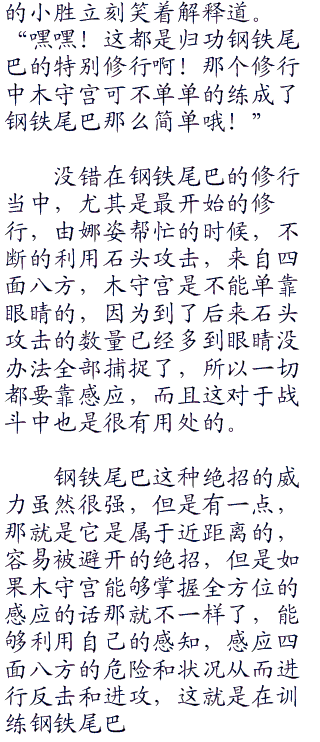 的小胜立刻笑着解释道。
“嘿嘿！这都是归功钢铁尾
巴的特别修行啊！那个修行
中木守宫可不单单的练成了
钢铁尾巴那么简单哦！”
没错在钢铁尾巴的修行
当中，尤其是最开始的修
行，由娜姿帮忙的时候，不
断的利用石头攻击，来自四
面八方，木守宫是不能单靠
眼睛的，因为到了后来石头
攻击的数量已经多到眼睛没
办法全部捕捉了，所以一切
都要靠感应，而且这对于战
斗中也是很有用处的。
钢铁尾巴这种绝招的威
力虽然很强，但是有一点，
那就是它是属于近距离的，
容易被避开的绝招，但是如
果木守宫能够掌握全方位的
感应的话那就不一样了，能
够利用自己的感知，感应四
面八方的危险和状况从而进
行反击和进攻，这就是在训
练钢铁尾巴